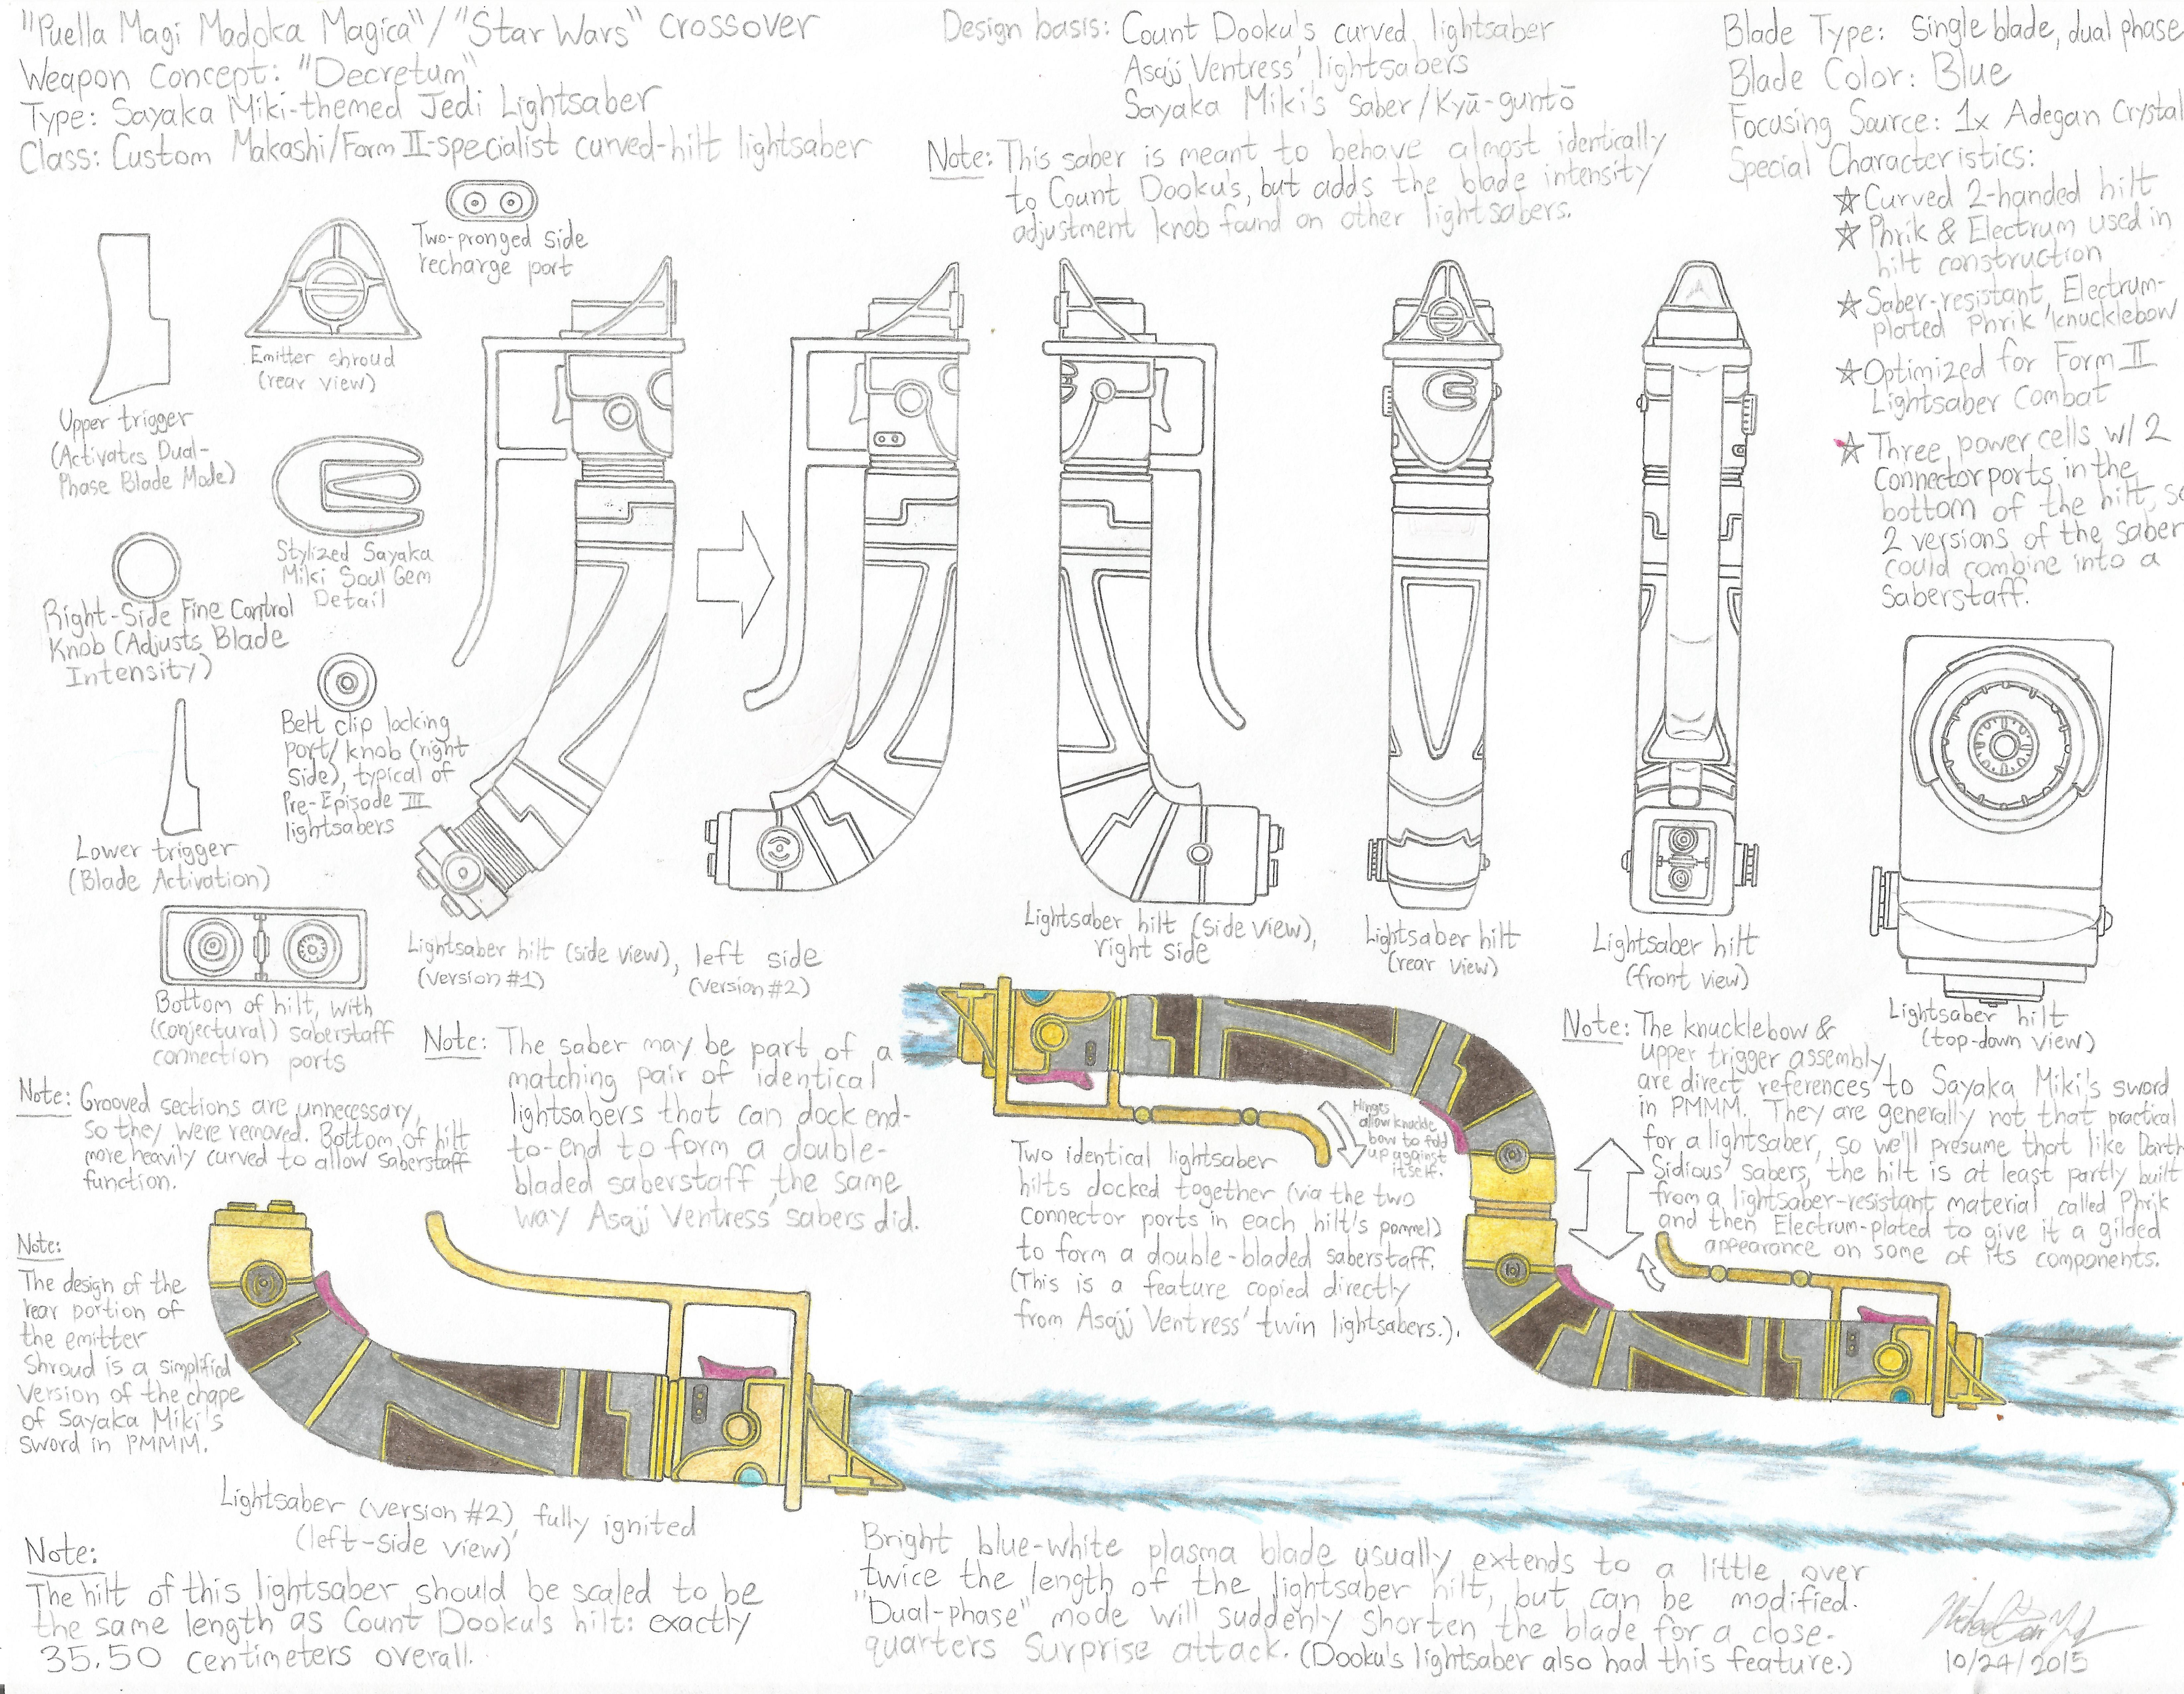 "Puella Magi Madoka Magica"/"Star Wars" Crossover
Weapon Concept: "Decretum"
Type: Sayaka Miki-themed Jedi Lightsaber
Class: Custom Makashi/Form II-specialist curved-hilt lightsaber
Design basis: Count Dooku's curved lightsaber
Asajj Ventress' lightsabers
Sayaka Miki's saber/Kyū-guntō
Note: This saber is meant to behave almost identically
to Count Dooku's, but adds the blade intensity
adjustment knob found on other lightsabers.
Blade Type: Single blade, dual phase
Blade Color: Blue
Focusing Source: 1x Adegan Crystal
Special Characteristics:
☆ Curved 2-handed hilt
☆ Phrik & Electrum used in
hilt construction
☆ Saber-resistant, Electrum-
plated Phrik knucklebow
☆ Optimized for Form II
Lightsaber Combat
☆ Three power cells w/2
Connector ports in the
bottom of the hilt, so
2 versions of the saber
could combine into a
Saberstaff.
Two-pronged side
recharge port
Emitter shroud
(rear view)
Upper trigger
(Activates Dual-
Phase Blade Mode)
Stylized Sayaka
Miki Soul Gem
Detail
Right-Side Fine Control
Knob (Adjusts Blade
Intensity)
Belt clip locking
port/knob (right
side), typical of
Pre-Episode III
lightsabers
Lower trigger
(Blade Activation)
Bottom of hilt, with
(conjectural) saberstaff
connection ports
Lightsaber hilt (side view), left side
(version #1)
(version #2)
Lightsaber hilt (side view),
right side
Lightsaber hilt
(rear view)
Lightsaber hilt
(front view)
Lightsaber hilt
(top-down view)
Note: Grooved sections are unnecessary,
so they were removed. Bottom of hilt
more heavily curved to allow saberstaff
function.
Note: The saber may be part of a
matching pair of identical
lightsabers that can dock end-
to-end to form a double-
bladed saberstaff the same
way Asajj Ventress' sabers did.
Hinges
allow knuckle
bow to fold
up against
itself.
Two identical lightsaber
hilts docked together (via the two
connector ports in each hilt's pommel)
to form a double-bladed saberstaff.
(This is a feature copied directly
from Asajj Ventress' twin lightsabers.).
Note: The knucklebow &
upper trigger assembly
are direct references to Sayaka Miki's sword
in PMMM. They are generally not that practical
for a lightsaber, so we'll presume that like Darth
Sidious' sabers, the hilt is at least partly built
from a lightsaber-resistant material called Phrik
and then Electrum-plated to give it a gilded
appearance on some of its components.
Note:
The design of the
rear portion of
the emitter
Shroud is a simplified
version of the chape
of Sayaka Miki's
sword in PMMM.
Lightsaber (version #2) fully ignited
(left-side view)
Note:
The hilt of this lightsaber should be scaled to be
the same length as Count Dooku's hilt: exactly
35.50 centimeters overall.
Bright blue-white plasma blade usually extends to a little over
twice the length of the lightsaber hilt, but can be modified.
"Dual-phase" mode will suddenly shorten the blade for a close-
quarters surprise attack. (Dooku's lightsaber also had this feature.)
10/24/2015